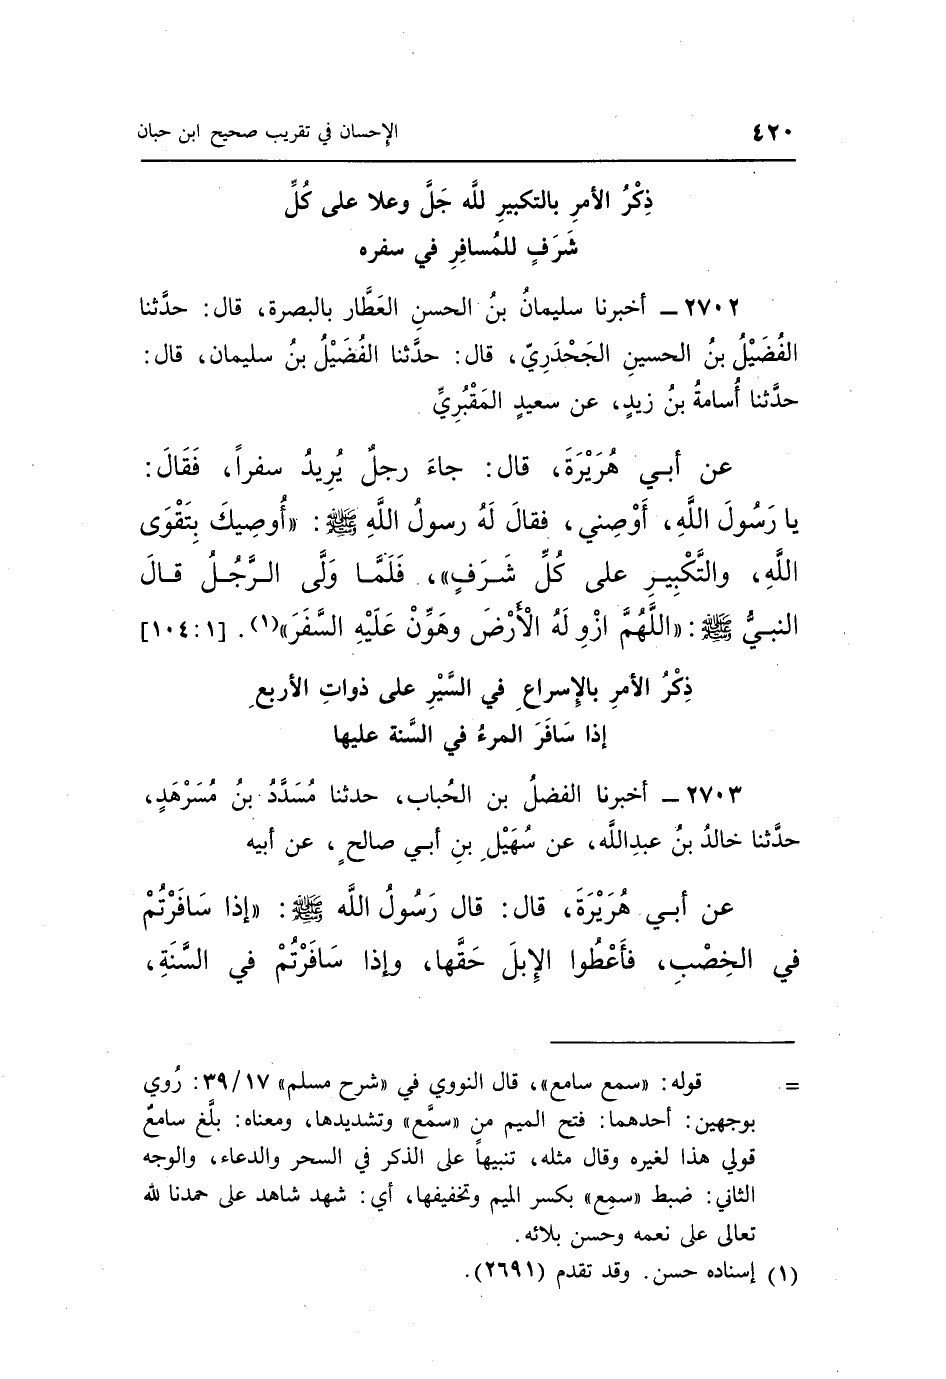 ٤٢٠ الإحسان في تقريب صحيح ابن حبان
ذِكْرُ الأمرِ بالتكبيرِ للَّه جَلَّ وعلا على كُلِّ
شَرَفٍ للمُسافِرِ في سفره
٢٧٠٢ ـ أخبرنا سليمانُ بنُ الحسنِ العَطَّار بالبصرة، قال: حدَّثنا
الفُضَيْلُ بنُ الحسينِ الجَحْدَرِيّ، قال: حدَّثنا الفُضَيْلُ بنُ سليمان، قال:
حدَّثنا أُسامةُ بنُ زيدٍ، عن سعيدٍ المَقْبُرِيِّ
عن أبي هُرَيْرَةَ، قال: جاءَ رجلٌ يُرِيدُ سفراً، فَقَالَ:
يا رَسُولَ اللَّهِ، أَوْصِني، فقالَ لَهُ رسولُ اللَّهِ ﷺ: «أُوصِيكَ بِتَقْوَى
اللَّهِ، والتَّكْبِيرِ على كُلِّ شَرَفٍ»، فَلَمَّا وَلَّى الرَّجُلُ قالَ
النبيُّ ﷺ: «اللَّهُمَّ ازْوِ لَهُ الْأَرْضَ وهَوِّنْ عَلَيْهِ السَّفَرَ»(١). [١: ١٠٤]
ذِكْرُ الأمرِ بالإِسراعِ في السَّيْرِ على ذواتِ الأربعِ
إذا سَافَرَ المرءُ في السَّنة عليها
٢٧٠٣ ـ أخبرنا الفضلُ بن الحُباب، حدثنا مُسَدَّدُ بنُ مُسَرْهَدٍ،
حدَّثنا خالدُ بنُ عبدِاللَّه، عن سُهَيْلِ بنِ أبي صالحٍ، عن أبيه
عن أبي هُرَيْرَةَ، قال: قال رَسُولُ اللَّه ﷺ: «إذا سَافَرْتُمْ
في الخِصْبِ، فأَعْطُوا الإِبلَ حَقَّها، وإذا سَافَرْتُمْ في السَّنَةِ،
= قوله: «سمع سامع»، قال النووي في «شرح مسلم» ٣٩/١٧: رُوي
بوجهين: أحدهما: فتح الميم من «سمَّع» وتشديدها، ومعناه: بلَّغ سامعٌ
قولي هذا لغيره وقال مثله، تنبيهاً على الذكر في السحر والدعاء، والوجه
الثاني: ضبط «سمِع» بكسر الميم وتخفيفها، أي: شهد شاهد على حمدنا لله
تعالى على نعمه وحسن بلائه.
(١) إسناده حسن. وقد تقدم (٢٦٩١).